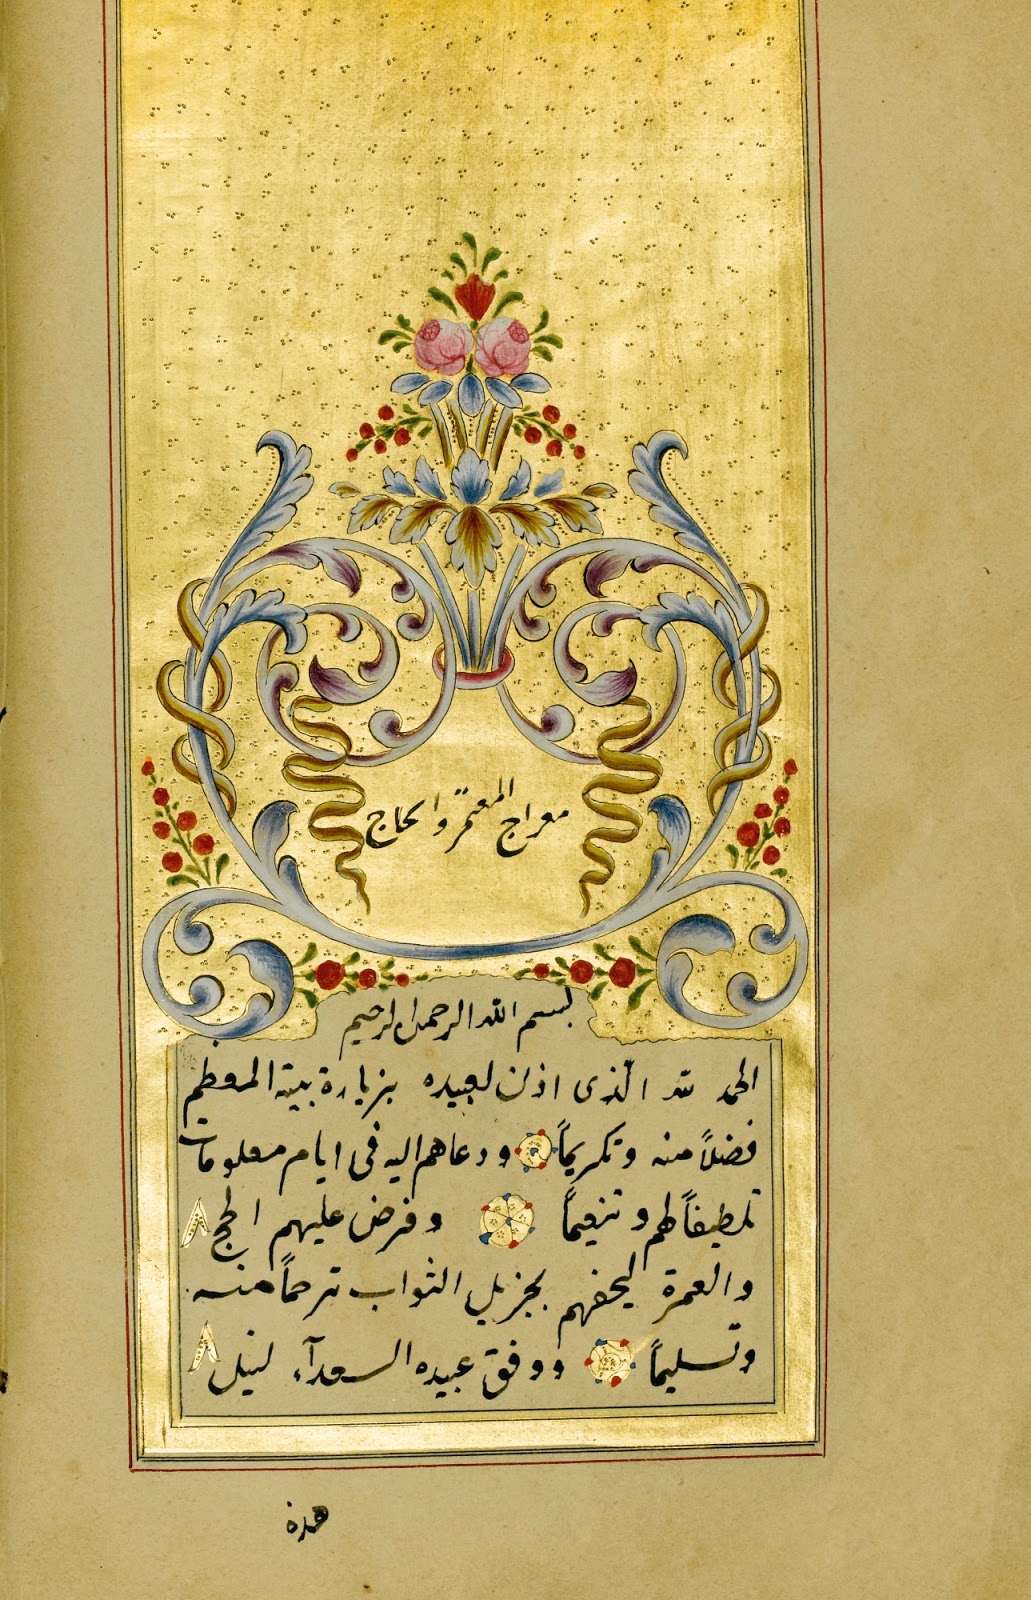 معراج المعتمر والحاج
بسم الله الرحمن الرحيم
الحمد لله الّذى اذن لعبيده بزيارة بيته المعظم
فضلاً منه وتكريماً ودعاهم اليه فى ايام معلومات
تلطيفاً لهم وتنعيماً وفرض عليهم الحج
والعمرة ليحفهم بجزيل الثواب ترحماً منه
وتسليماً ووفق عبيده السعدآء لنيل
هذه